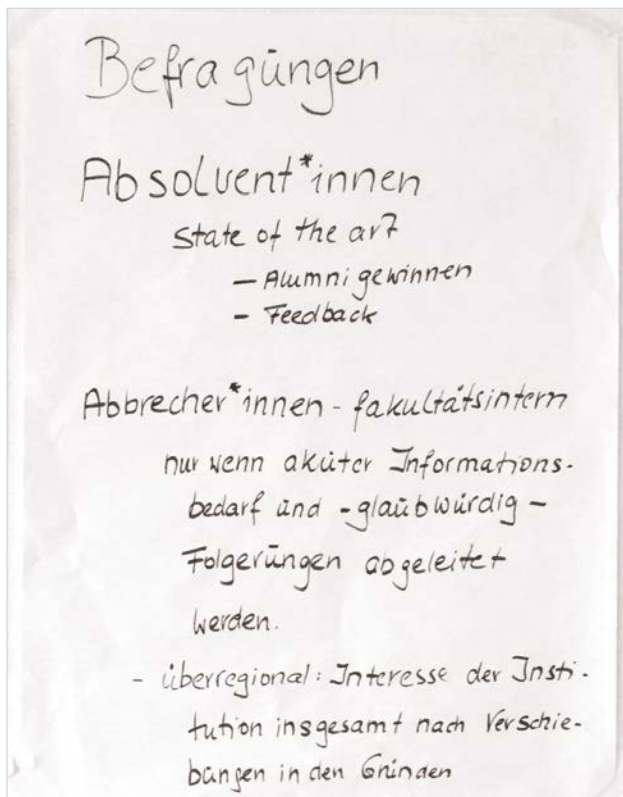 Befragungen
Absolvent*innen
State of the art
– Alumni gewinnen
– Feedback
Abbrecher*innen - fakultätsintern
nur wenn akuter Informations-
bedarf und - glaubwürdig -
Folgerungen abgeleitet
werden.
- überregional: Interesse der Insti-
tution insgesamt nach Verschie-
bungen in den Gründen